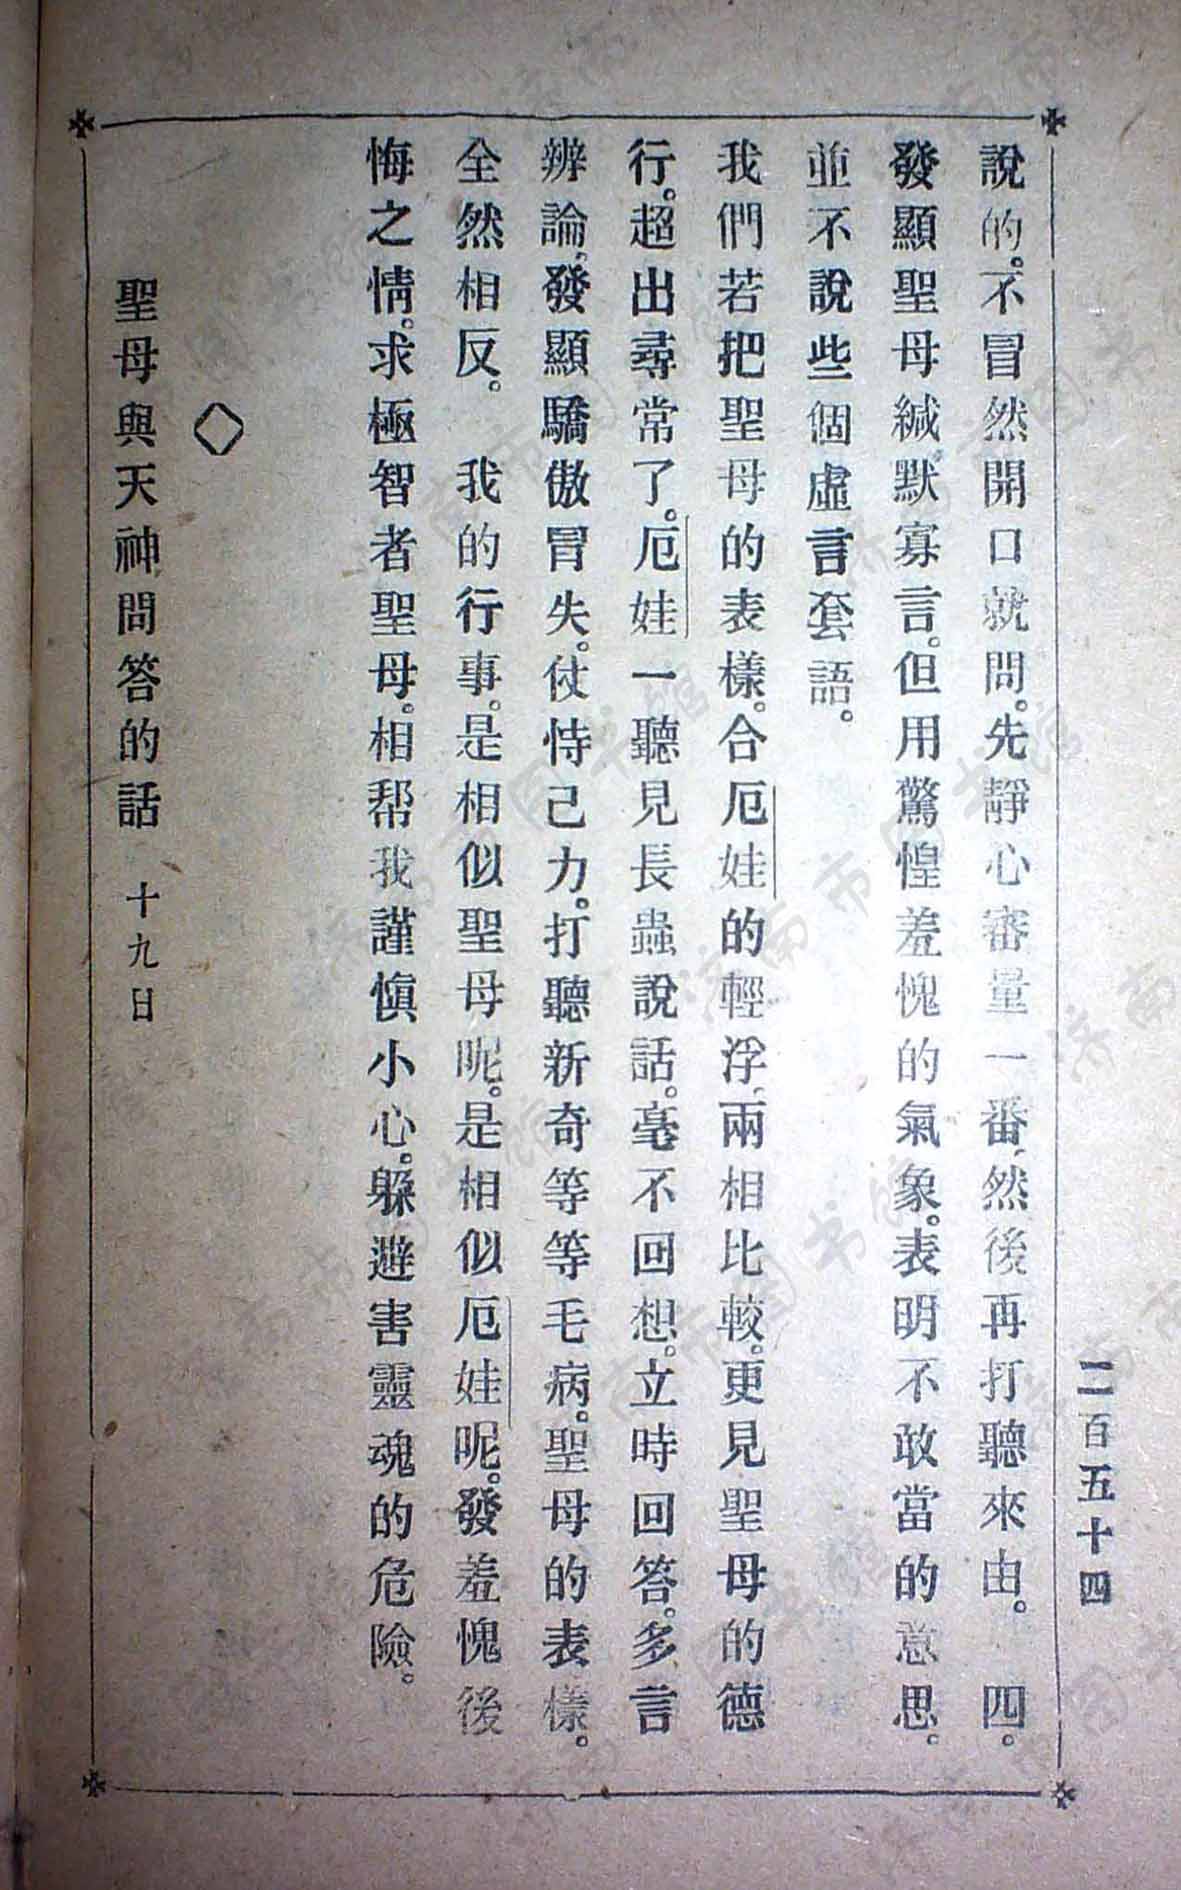 二百五十四
說的。不冒然開口就問。先靜心審量一番、然後再打聽來由。　四。
發顯聖母緘默寡言。但用驚惶羞愧的氣象。表明不敢當的意思。
並不說些個虛言套語。
我們若把聖母的表樣。合厄娃的輕浮、兩相比較。更見聖母的德
行。超出尋常了。厄娃一聽見長蟲說話。毫不回想。立時回答。多言
辨論、發顯驕傲冒失。仗恃己力。打聽新奇等等毛病。聖母的表樣。
全然相反。　我的行事。是相似聖母呢。是相似厄娃呢。發羞愧後
悔之情。求極智者聖母。相帮我謹慎小心。躲避害靈魂的危險。
◇
聖母與天神問答的話　十九日